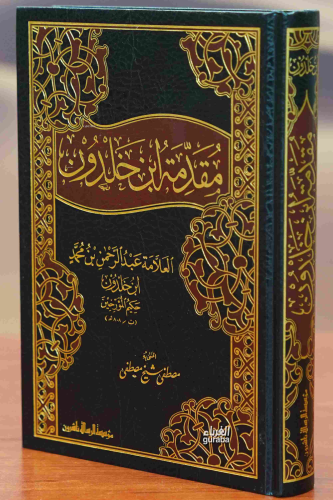 مُقَدِّمَة ابْن خَلْدُوْن
العَلامَة عَبْد الرَّحْمٰن بْنُ مُحَمَّد
ابن خَلدُون
مصطفى شيخ مصطفى
مؤسسة الرسالة ناشرون
الغرباء
guraba
مقدمة ابن خلدون